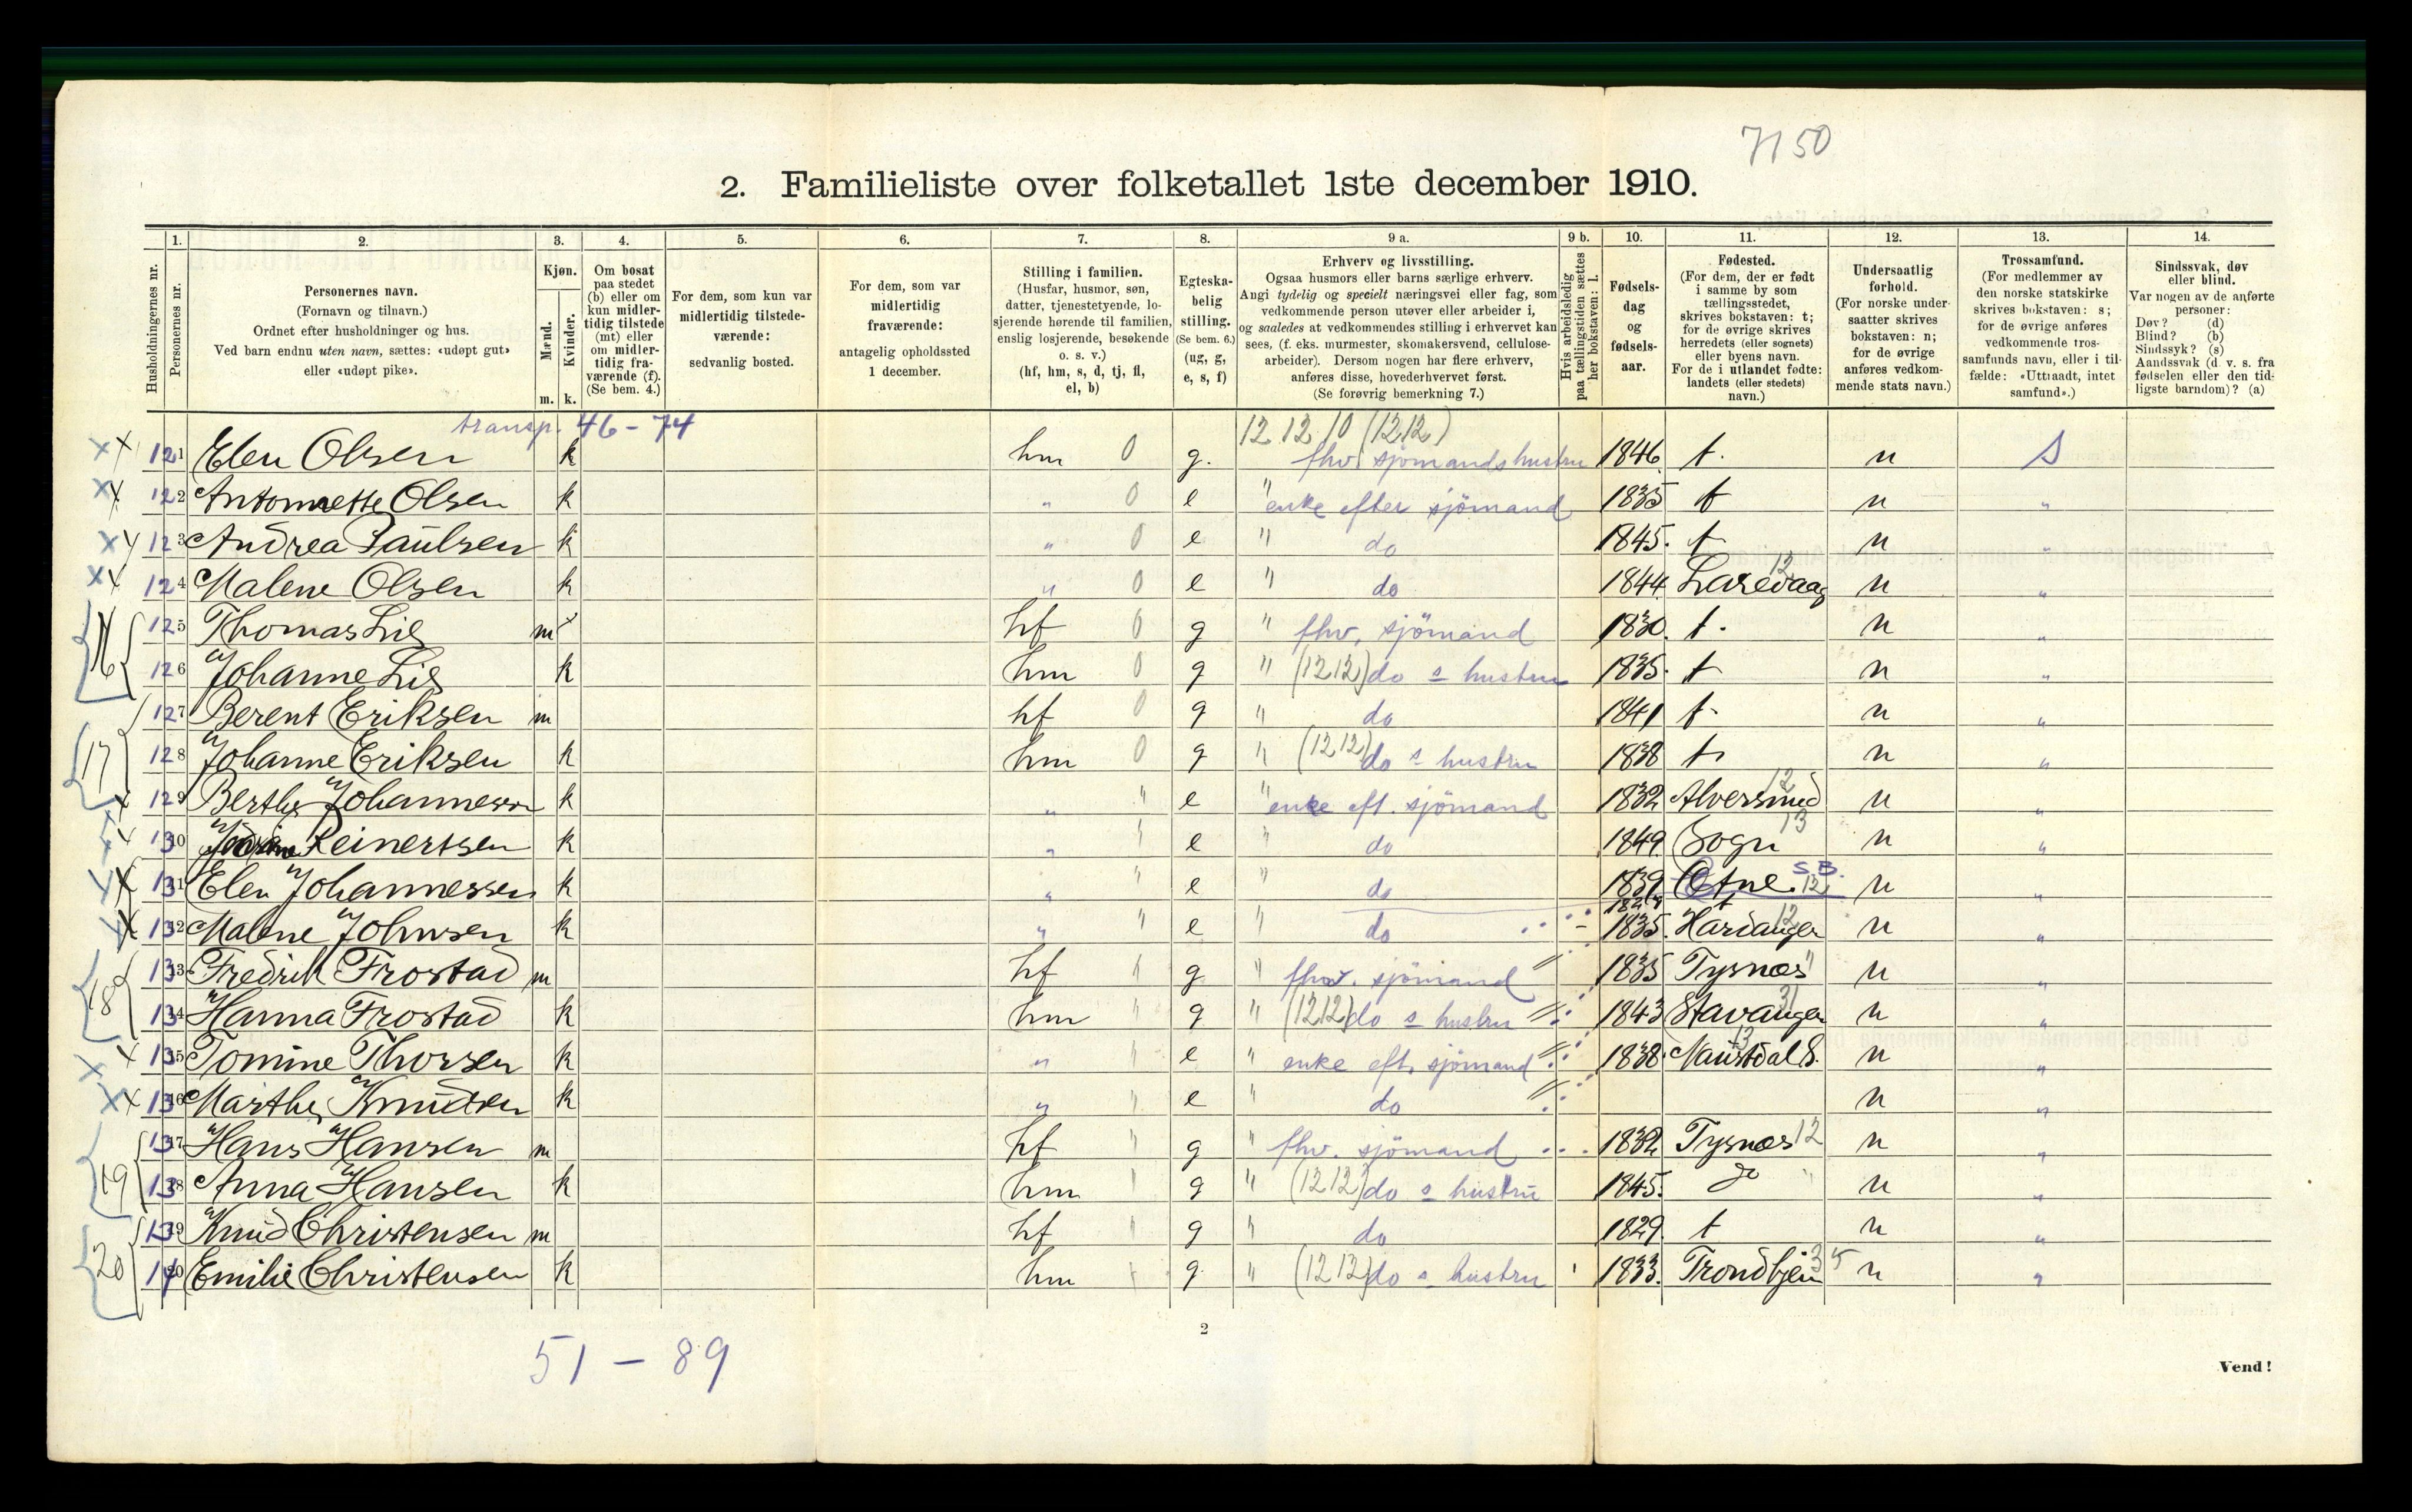 7150
2. Familieliste over folketallet 1ste december 1910.
1. 2. 3. 4. 5. 6. 7. 8. 9 a. 9 b. 10. 11. 12. 13. 14.
Husholdningernes nr.
Personernes nr.
Personernes navn.
(Fornavn og tilnavn.)
Ordnet efter husholdninger og hus.
Ved barn endnu uten navn, sættes: «udøpt gut»
eller «udøpt pike».
Kjøn.
Mænd.
Kvinder.
m. k.
Om bosat
paa stedet
(b) eller om
kun midler-
tidig tilstede
(mt) eller
om midler-
tidig fra-
værende (f).
(Se bem. 4.)
For dem, som kun var
midlertidig tilstede-
værende:
sedvanlig bosted.
For dem, som var
midlertidig
fraværende:
antagelig opholdssted
1 december.
Stilling i familien.
(Husfar, husmor, søn,
datter, tjenestetyende, lo-
sjerende hørende til familien,
enslig losjerende, besøkende
o. s. v.)
(hf, hm, s, d, tj, fl,
el, b)
Egteska-
belig
stilling.
(Se bem. 6.)
(ug, g,
e, s, f)
Erhverv og livsstilling.
Ogsaa husmors eller barns særlige erhverv.
Angi tydelig og specielt næringsvei eller fag, som
vedkommende person utøver eller arbeider i,
og saaledes at vedkommendes stilling i erhvervet kan
sees, (f. eks. murmester, skomakersvend, cellulose-
arbeider). Dersom nogen har flere erhverv,
anføres disse, hovederhvervet først.
(Se forøvrig bemerkning 7.)
Hvis arbeidsledig
paa tællingstiden sættes
her bokstaven: l.
Fødsels-
dag
og
fødsels-
aar.
Fødested.
(For dem, der er født
i samme by som
tællingsstedet,
skrives bokstaven: t;
for de øvrige skrives
herredets (eller sognets)
eller byens navn.
For de i utlandet fødte:
landets (eller stedets)
navn.)
Undersaatlig
forhold.
(For norske under-
saatter skrives
bokstaven: n;
for de øvrige
anføres vedkom-
mende stats navn.)
Trossamfund.
(For medlemmer av
den norske statskirke
skrives bokstaven: s;
for de øvrige anføres
vedkommende tros-
samfunds navn, eller i til-
fælde: «Uttraadt, intet
samfund».)
Sindssvak, døv
eller blind.
Var nogen av de anførte
personer:
Døv? (d)
Blind? (b)
Sindssyk? (s)
Aandssvak (d. v. s. fra
fødselen eller den tid-
ligste barndom)? (a)
transp. 46 - 74 12 12 10 (1212)
121 Elen Olsen k hm 0 g. fhv. sjömands hustru 1846. t. n S
122 Antonnette Olsen k " 0 e " enke efter sjömand 1835 t n "
123 Andrea Paulsen k " 0 e " do 1845. t n "
124 Malene Olsen k " 0 e " do 1844 Laxevaag 12 n "
16 125 Thomas Lie m hf 0 g " fhv. sjömand 1830. t. n "
126 Johanne Lie k hm 0 g " (1212) do s hustru 1835. t n "
17 127 Berent Eriksen m hf 0 g " do 1841 t. n "
128 Johanne Eriksen k hm 0 g " (1212) do s hustru 1838 t. n "
129 Berthe Johannesen k " " e " enke eft. sjömand 1832 Alversund 12 n "
130 Reinertsen k " " e " do 1849. Sogn 13 n "
131 Elen Johannessen k " " e " do 1839 Etne. S.B. 12 n "
132 Malene Johnsen k " " e " do 1835. Hardanger 12 n "
18 133 Fredrik Frostad m hf " g " fhv. sjömand 1835 Tysnæs " n "
134 Hanna Frostad k hm " g " (1212) do s hustru 1843 Stavanger 31 n "
135 Tomine Thorsen k " " e " enke eft. sjömand 1838. Naustdal S. 13 n "
136 Marthe Knudsen k " " e " do n "
19 137 Hans Hansen m hf " g " fhv. sjömand 1832 Tysnæs 12 n "
138 Anna Hansen k hm " g " (1212) do s hustru 1845. do " n "
20 139 Knud Christensen m hf " g " do 1829. t n "
140 Emilie Christensen k hm " g " (1212) do s hustru 1833. Trondhjem 35 n "
2
51 - 89
Vend!